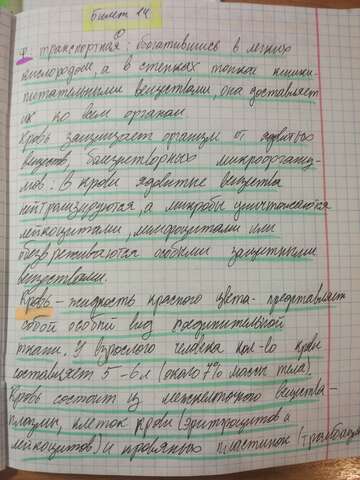 билет 14
транспортная: обогатившись в легких
кислородом, а в стенках тонкой кишки-
питательными веществами, она доставляет
их ко всем органам.
Кровь защищает организм от ядовитых
веществ, болезнетворных микроорганиз-
мов: В крови ядовитые вещества
нейтрализуются, а микробы уничтожаются
лейкоцитами, лимфоцитами или
обезвреживаются особыми защитными
веществами.
Кровь - жидкость красного цвета - представляет
собой особый вид соединительной
ткани. У взрослого человека кол-во крови
составляет 5-6 л (около 7% массы тела).
Кровь состоит из межклеточного вещества-
плазмы, клеток крови (эритроцитов и
лейкоцитов) и кровяных пластинок (тромбоцитов